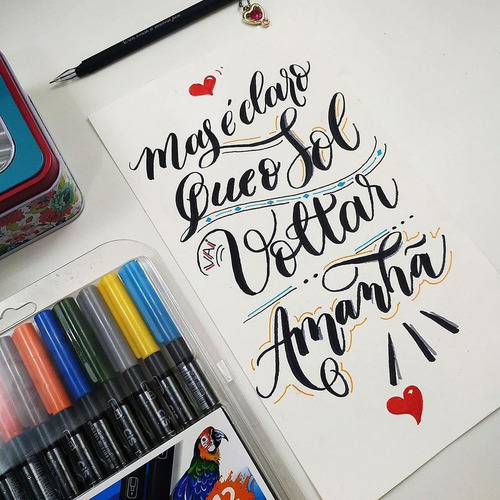 mas é claro
Que o Sol
VAI
Voltar
Amanhã
cis
12